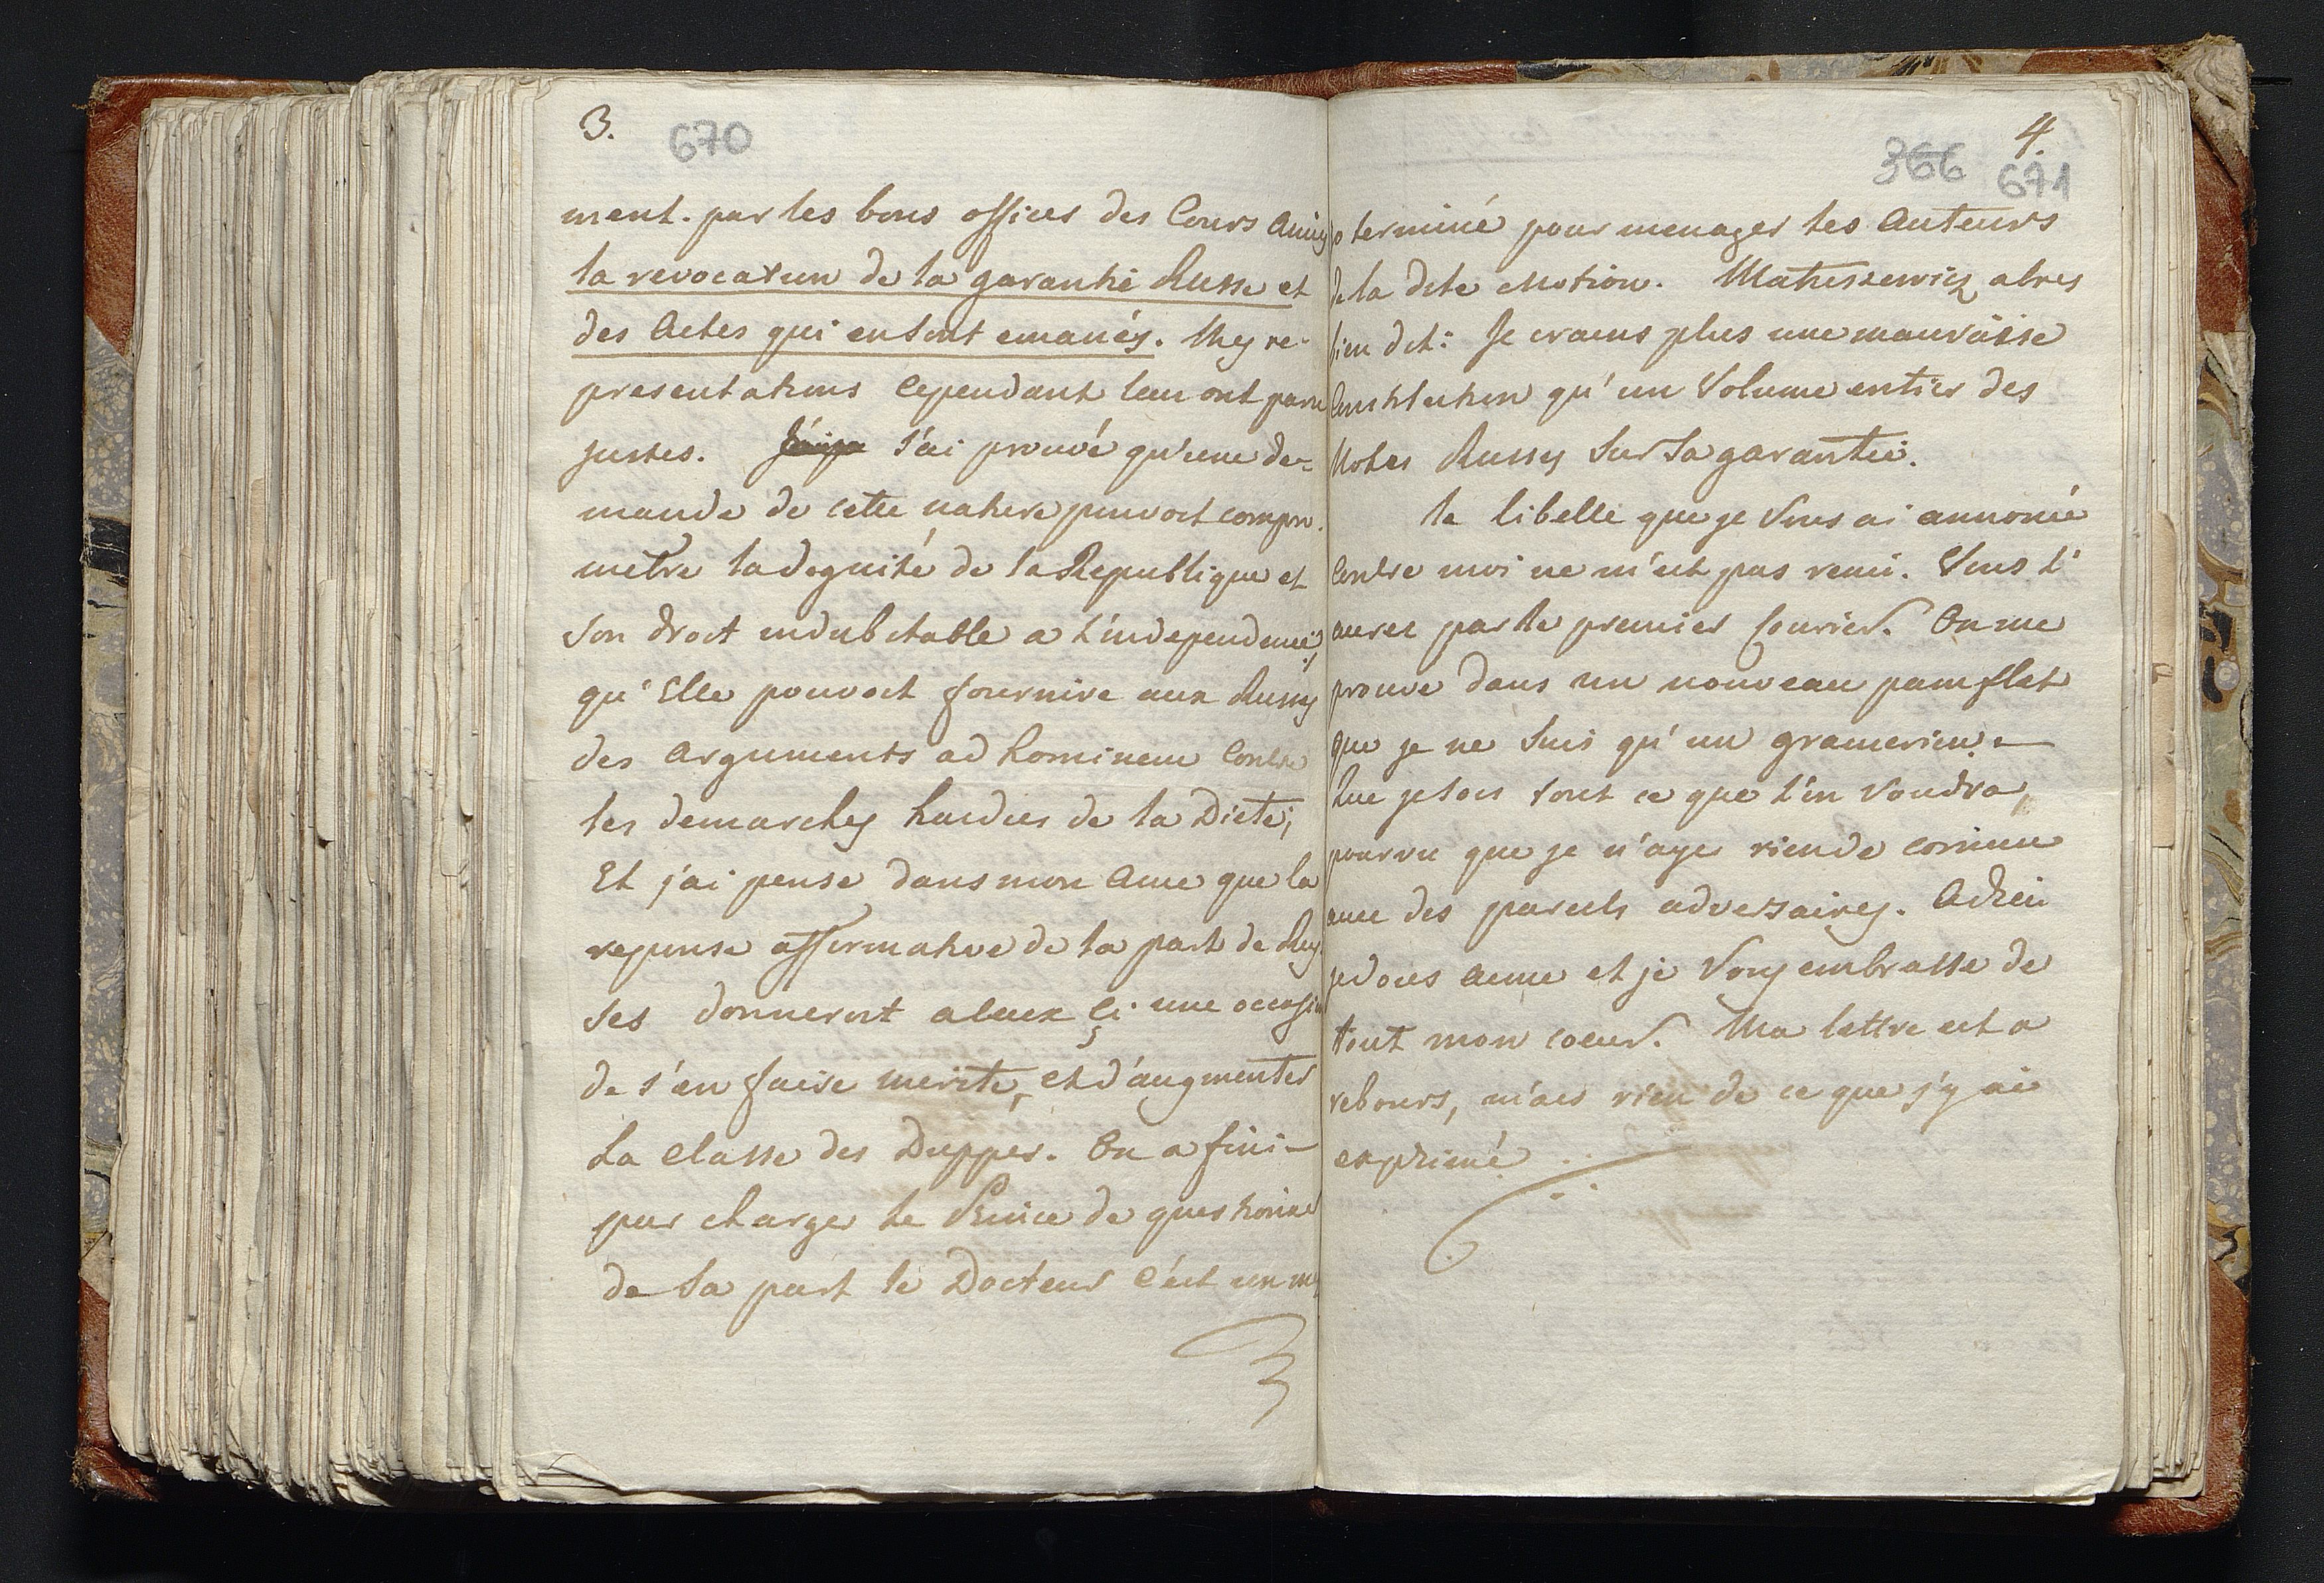 3.
670
ment. par les bons offices des Cours Amies
la revocation de la garantie Russe et
des Actes qui en sont emanés. Mes re-
presentations cependant leur ont paru
justes. J'ai prouvé qu'une de-
mande de cette nature pouvoit compro-
mettre la dignité de la Republique et
son droit indubitable a l'independence,
qu'Elle pouvoit fournire aux Russes
des arguments ad hominem contre
les demarches hardies de la Diete;
Et j'ai pensé dans mon Ame que la
reponse affirmative de la part de Rus-
ses donneroit a ceux çi une occasion
de s'en faire merite, et d'augmenter
La classe des Duppes. On a fini
par charger le Prince de questioner
de sa part le Docteur c'est un m
4.
366 671
terminé pour menager les Auteurs
de la dite Motion. Matuszewicz a tres
bien dit: Je crains plus une mauvaise
Constitution qu'un Volume entier des
Notes Russes sur sa garantie.
le libelle que je Vous ai annoncé
contre moi ne m'est pas remi. Vous l'
aurez par le premier Courier. On me
prouve dans un nouveau pamflet
que je ne suis qu'un gramerien.
Que je sois tout ce que l'on voudra,
pourvu que je n'aye rien de commun
avec des pareils adversaires. Adieu
je vous aime et je Vous embrasse de
tout mon coeur. Ma lettre est a
rebours, mais rien de ce que j'y ai
exprimé